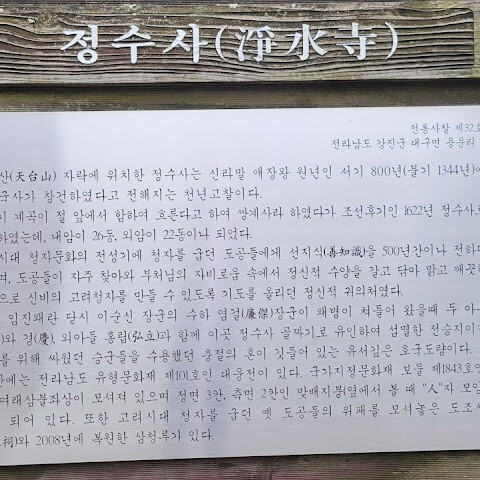 정수사(淨水寺)
전통사찰 제32호
전라남도 강진군 대구면 용운리
산(天台山) 자락에 위치한 정수사는 신라말 애장왕 원년인 서기 800년(불기 1344년)에
국사가 창건하였다고 전해지는 천년고찰이다.
이 계곡이 절 앞에서 합하여 흐른다고 하여 쌍계사라 하였다가 조선후기인 1622년 정수사로
하였는데, 내암이 26동, 외암이 22동이나 되었다.
시대 청자문화의 전성기에 청자를 굽던 도공들에게 선지식(善知識)을 500년간이나 전하다
며, 도공들이 자주 찾아와 부처님의 자비로움 속에서 정신적 수양을 갈고 닦아 맑고 깨끗한
으로 신비의 고려청자를 만들 수 있도록 기도를 올리던 정신적 위의처였다.
임진왜란 당시 이순신 장군의 수하 염걸(廉傑)장군이 왜병이 쳐들어 왔을때 두 아
)와 경(慶), 외아들 홍립(弘立)과 함께 이곳 정수사 골짜기로 유인하여 섬멸한 전승지이
를 위해 싸웠던 승군들을 수용했던 충절의 혼이 깃들어 있는 유서깊은 호국도량이다.
에는 전라남도 유형문화재 제101호인 대웅전이 있다. 국가지정문화재 보물 제1843호인
여래삼불좌상이 모셔져 있으며 정면 3칸, 측면 2칸인 맞배지붕(옆에서 볼 때 "人"자 모양
되어 있다. 또한 고려시대 청자를 굽던 옛 도공들의 위패를 모셔놓은 도조사
祠)와 2008년에 복원한 삼청루가 있다.